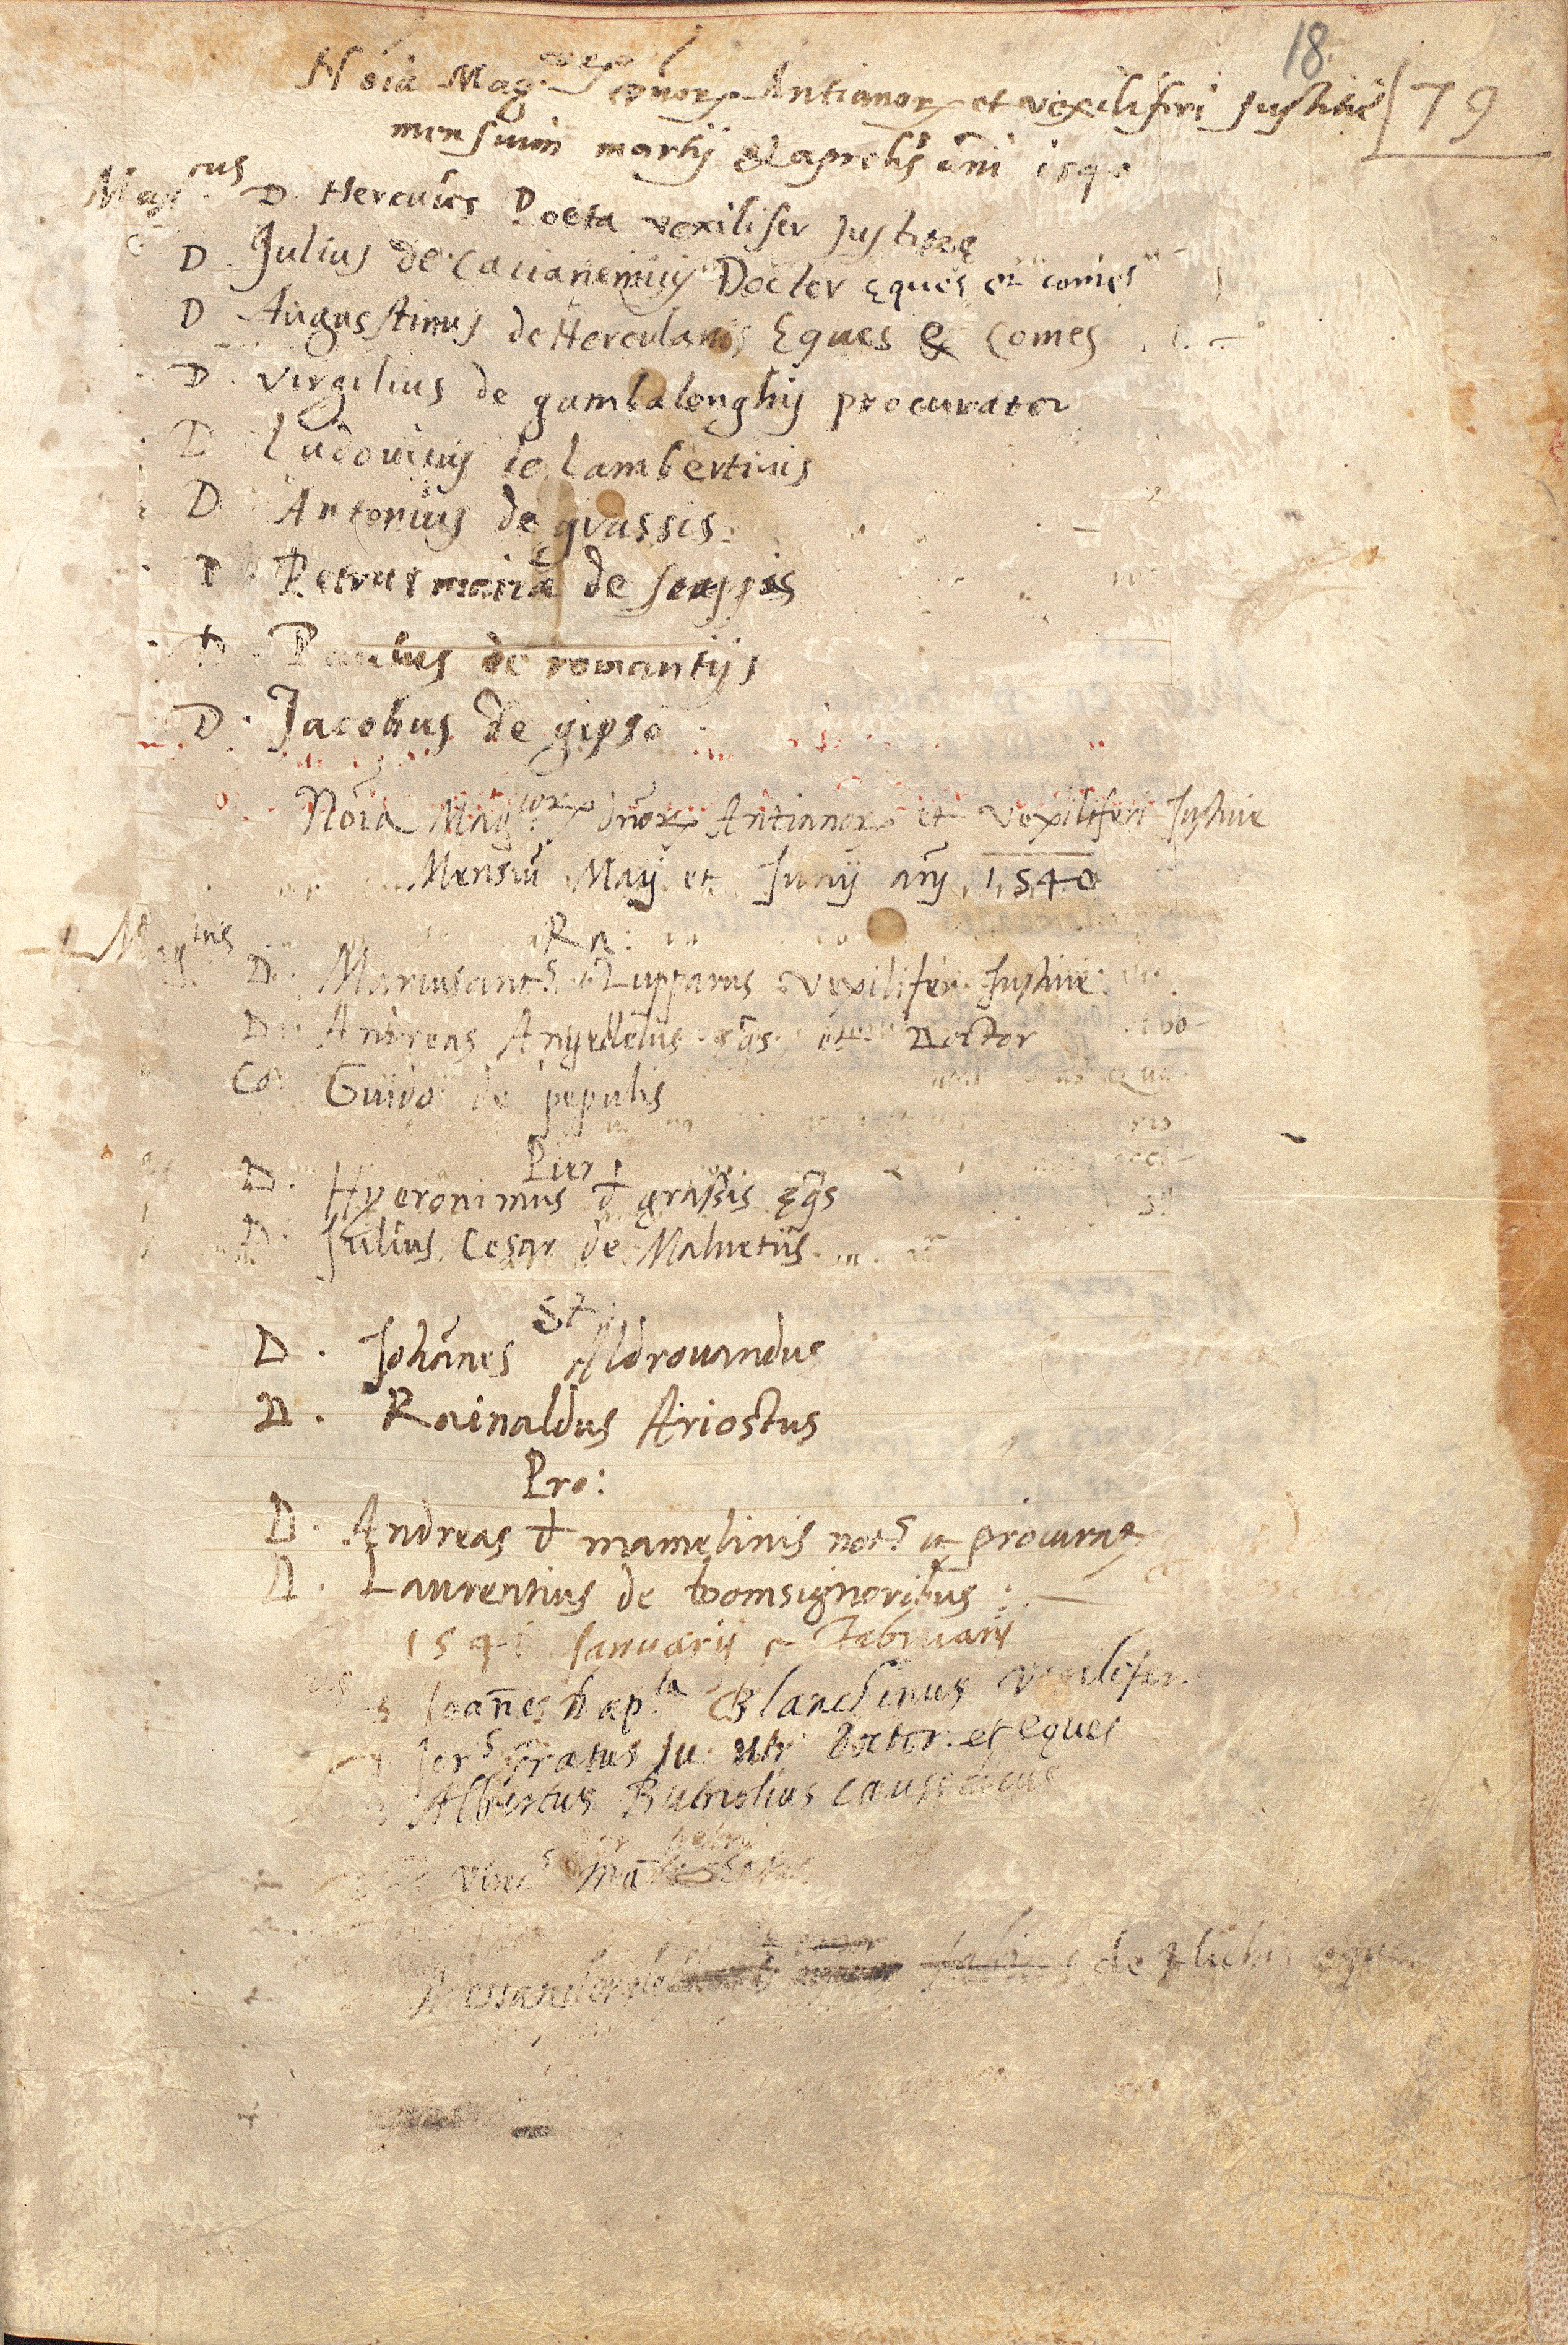 18.
79
Nōia Mag.corꝝ dn̄orꝝ Antianorꝝ et vexiliferi Justitie
mensium martij & aprelis ān̄i 1540
Mag.cus D. Hercules Poeta vexilifer Justitię
D Julius de Caccianemicis Doctor Eques et comes
D Augustinus de Herculanis Eques & Comes
D. virgilius de gambalonghis procurator
D Ludovicus de lambertinis
D Antonius de grassis
D Petrus maria de scappis
D Paulus de romantijs
D. Jacobus de gipso
Nōia Mag.corꝝ dn̄orꝝ Antianorꝝ et Vexiliferi Justitie
Mensiū Maij et Junij anj 1540
Ra:
Mag.cus D. Mariusants Lupparus Vexilifer Justitie
D. Andreas Angellelus eqs et Doctor
Co. Guido de pepulis
Pier
D. Hyeronimus đ grassis ęqs
D. Julius Cesar de Malvetiis
St.
D. Johānes Aldrovandus
D. Rainaldus Ariostus
Pro:
D. Andreas đ mamelinis nots et procurat
D. Laurentius de bomsignoribus
1541 Januarij et Februarij
Joan̄es bap.ta Blanchinus vexilifer
gratus Ju. utr. doctor et eques
Albertus Butriolius causidicus
vincs
de eques